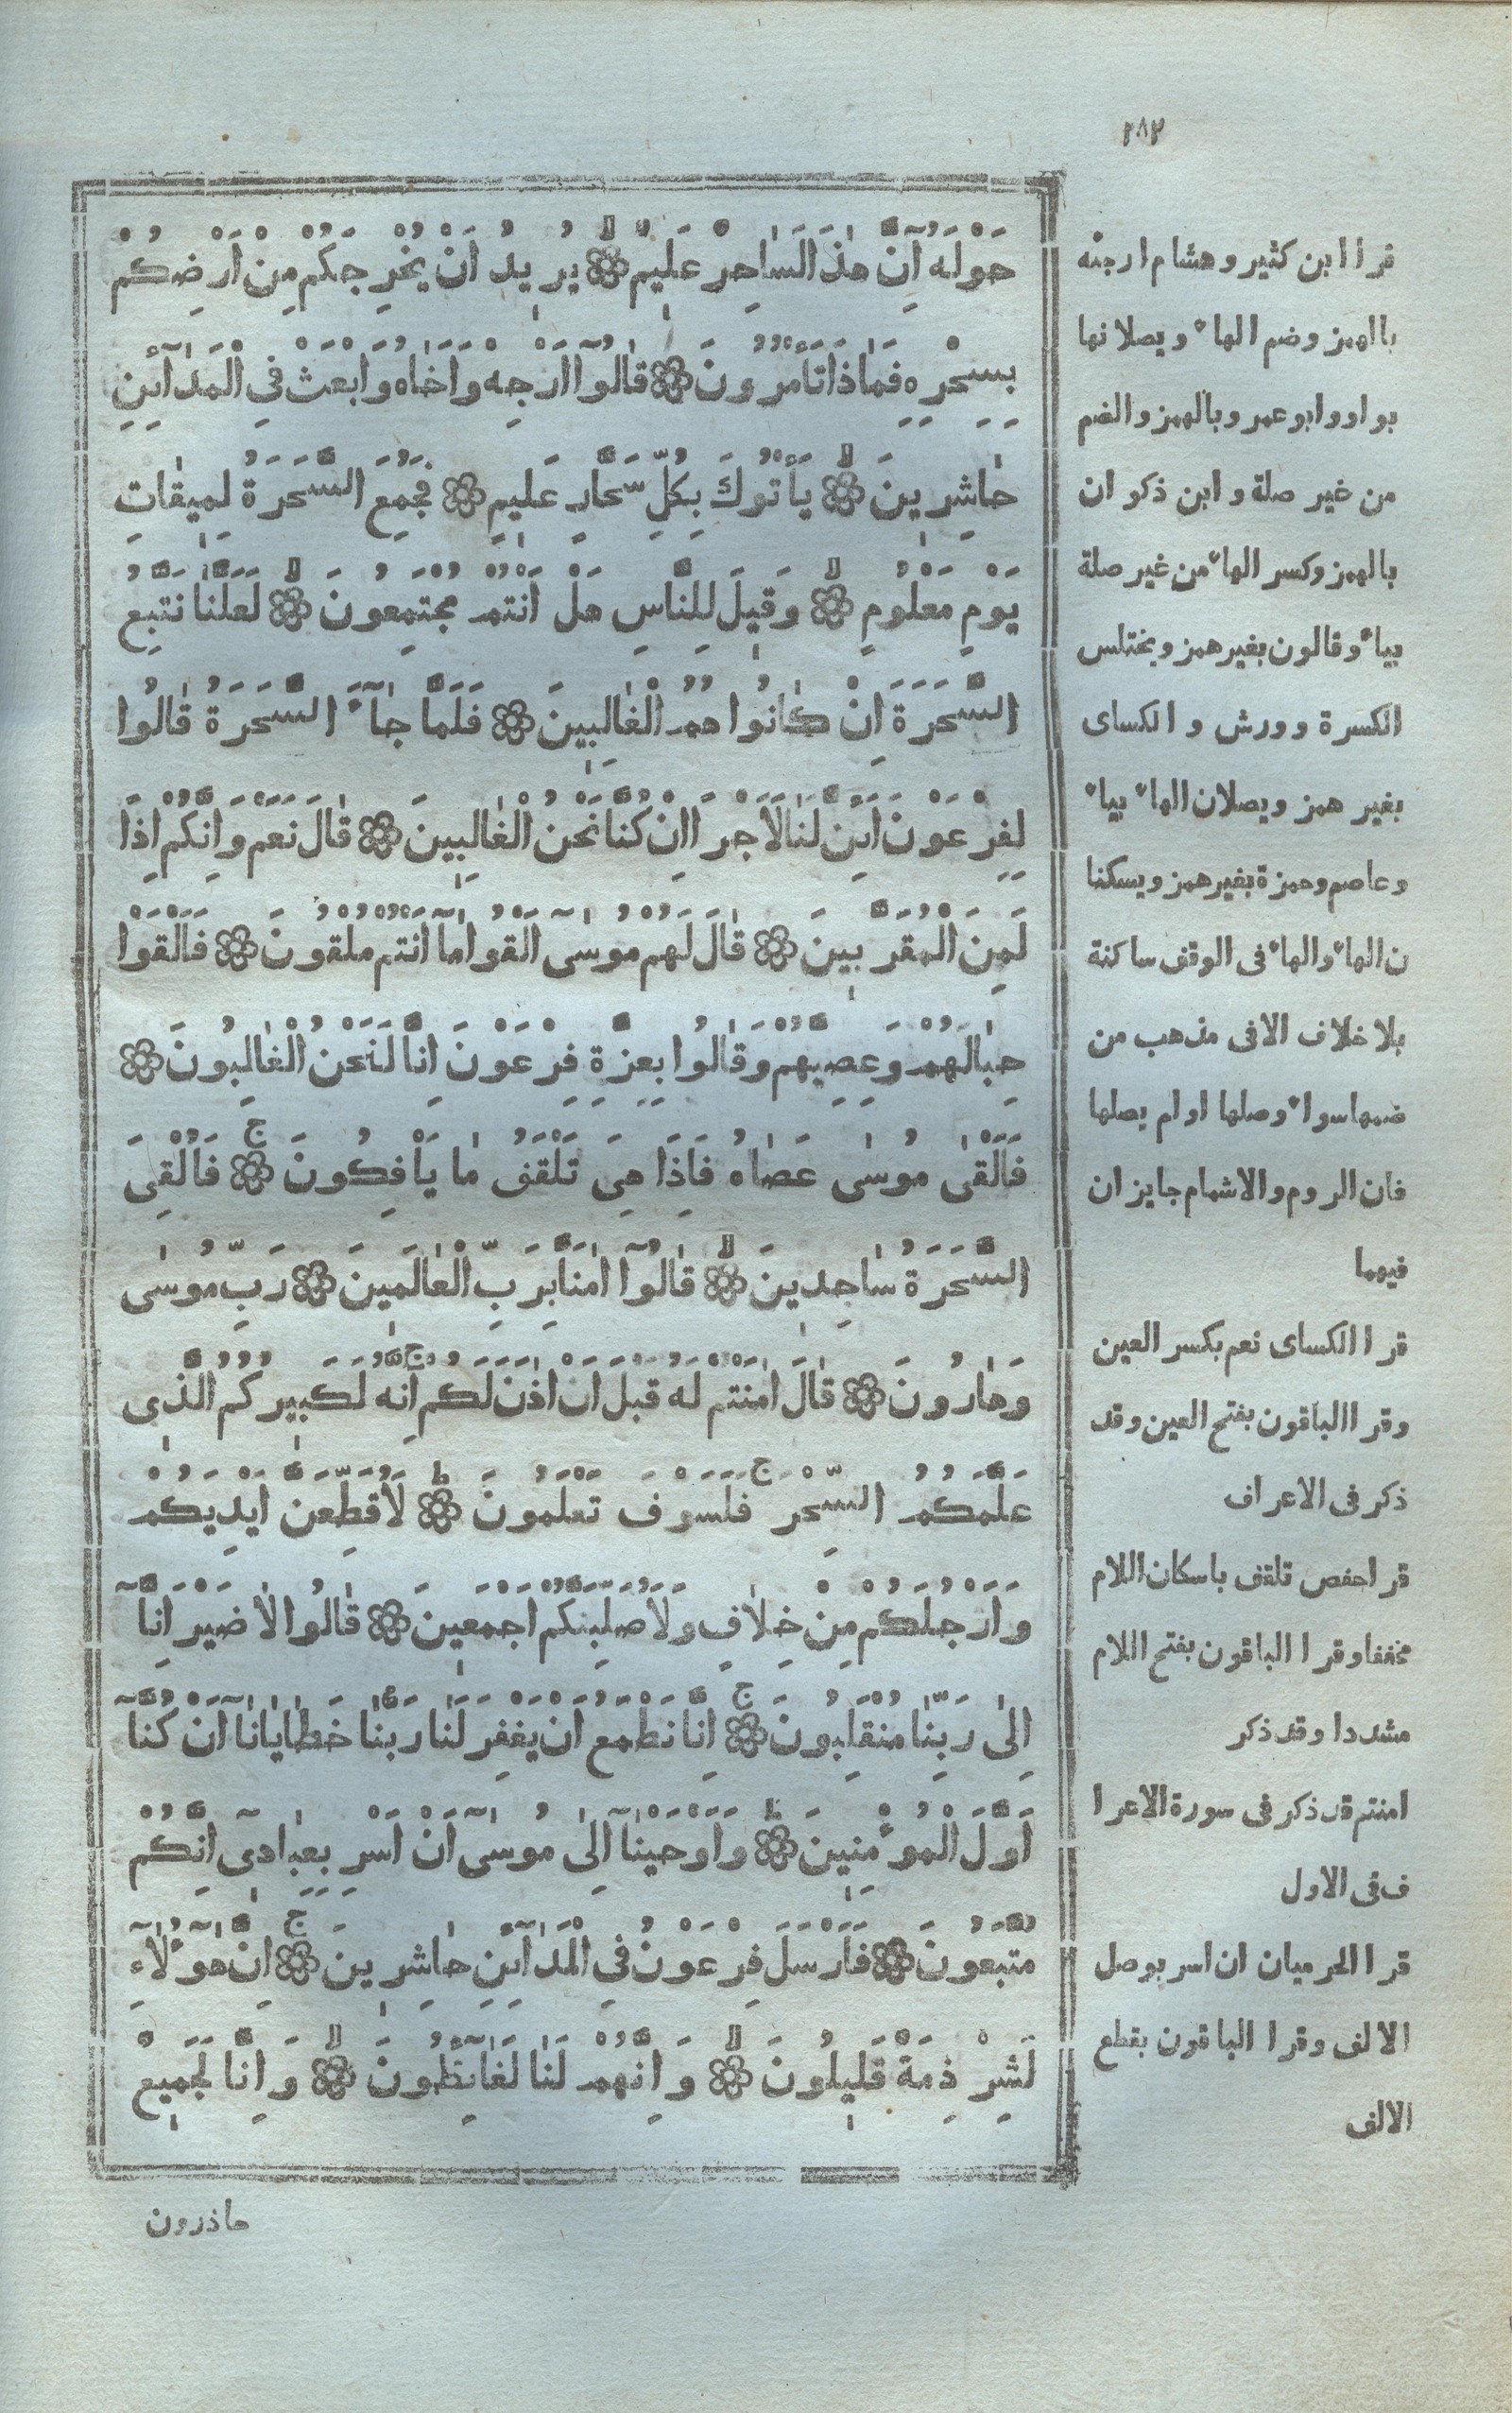 ٢٨٢
حَوْلَهُ آِنَّ هٰذَ الَسٰاحِرٌ عَلٖيمٌ ۙ يُرٖيدُ اَنْ يُخْرِجَكُمْ مِنْ اَرْضِكُمْ
بِسِحْرِهِ فَمٰاذَا تَأْمُرُونَ قٰالُوٓا اَرْجِهْ وَاَخٰاهُ وَابْعَثْ فِي الْمَدَآئِنِ
حٰاشِرٖينَ ۙ يَأْتُوكَ بِكُلِّ سَحَّارٍ عَلٖيمٍ فَجُمِعَ السَّحَرَةُ لِمٖيقٰاتِ
يَوْمٍ مَعْلُومٍ ۙ وَقٖيلَ لِلنَّاسِ هَلْ اَنْتُمْ مُجْتَمِعُونَ ۙ لَعَلَّنٰا نَتَّبِعُ
السَّحَرَةَ اِنْ كٰانُوا هُمُ الْغٰالِبٖينَ فَلَمَّا جٰآءَ السَّحَرَةُ قٰالُوا
لِفِرْعَوْنَ اَئِنَّ لَنٰا لَاَجْرًا اِنْ كُنَّا نَحْنُ الْغٰالِبٖينَ قٰالَ نَعَمْ وَاِنَّكُمْ اِذًا
لَمِنَ الْمُقَرَّبٖينَ قٰالَ لَهُمْ مُوسٰىٓ اَلْقُوا مٰآ اَنْتُمْ مُلْقُونَ فَاَلْقَوْا
حِبٰالَهُمْ وَعِصِيَّهُمْ وَقٰالُوا بِعِزَّةِ فِرْعَوْنَ اِنَّا لَنَحْنُ الْغٰالِبُونَ
فَاَلْقٰى مُوسٰى عَصٰاهُ فَاِذَا هِيَ تَلْقَفُ مٰا يَاْفِكُونَ ج فَاُلْقِيَ
السَّحَرَةُ سٰاجِدٖينَ ۙ قٰالُوٓا اٰمَنَّا بِرَبِّ الْعٰالَمٖينَ رَبِّ مُوسٰى
وَهٰارُونَ قٰالَ اٰمَنْتُمْ لَهُ قَبْلَ اَنْ اٰذَنَ لَكُمْ ج اِنَّهُ لَكَبٖيرُكُمُ الَّذٖى
عَلَّمَكُمُ السِّحْرَ ج فَلَسَوْفَ تَعْلَمُونَ ط لَاُقَطِّعَنَّ اَيْدِيَكُمْ
وَاَرْجُلَكُمْ مِنْ خِلٰافٍ وَلَاُصَلِّبَنَّكُمْ اَجْمَعٖينَ قٰالُوا لٰا ضَيْرَ اِنَّآ
اِلٰى رَبِّنٰا مُنْقَلِبُونَ ج اِنَّا نَطْمَعُ اَنْ يَغْفِرَ لَنٰا رَبُّنٰا خَطٰايٰانٰآ اَنْ كُنَّآ
اَوَّلَ الْمُؤْمِنٖينَ ط وَاَوْحَيْنٰآ اِلٰى مُوسٰىٓ اَنْ اَسْرِ بِعِبٰادٖىٓ اِنَّكُمْ
مُتَّبَعُونَ فَاَرْسَلَ فِرْعَوْنُ فِي الْمَدَآئِنِ حٰاشِرٖينَ ج اِنَّ هٰٓؤُلٰٓاءِ
لَشِرْذِمَةٌ قَلٖيلُونَ ۙ وَاِنَّهُمْ لَنٰا لَغٰآئِظُونَ ۙ وَاِنَّا لَجَمٖيعٌ
حاذرون
قرا ابن كثير وهشام ارجئه
بالهمز وضم الهاء ويصلانها
بواو وابو عمرو بالهمز والضم
من غير صلة وابن ذكوان
بالهمز وكسر الهاء من غير صلة
بياء وقالون بغير همز ويختلس
الكسرة وورش والكساى
بغير همز ويصلان الهاء بياء
وعاصم وحمزة بغير همز ويسكنا
ن الهاء والهاء فى الوقف ساكنة
بلا خلاف الا فى مذهب من
ضمها سواء وصلها او لم يصلها
فان الروم والاشمام جايزان
فيهما
قرا الكساى نعم بكسر العين
وقرا الباقون بفتح العين وقد
ذكر فى الاعراف
قرا حفص تلقف باسكان اللام
مخففا وقرا الباقون بفتح اللام
مشددا وقد ذكر
امنتم قد ذكر فى سورة الاعرا
ف فى الاول
قرا الحرميان ان اسر بوصل
الالف وقرا الباقون بقطع
الالف